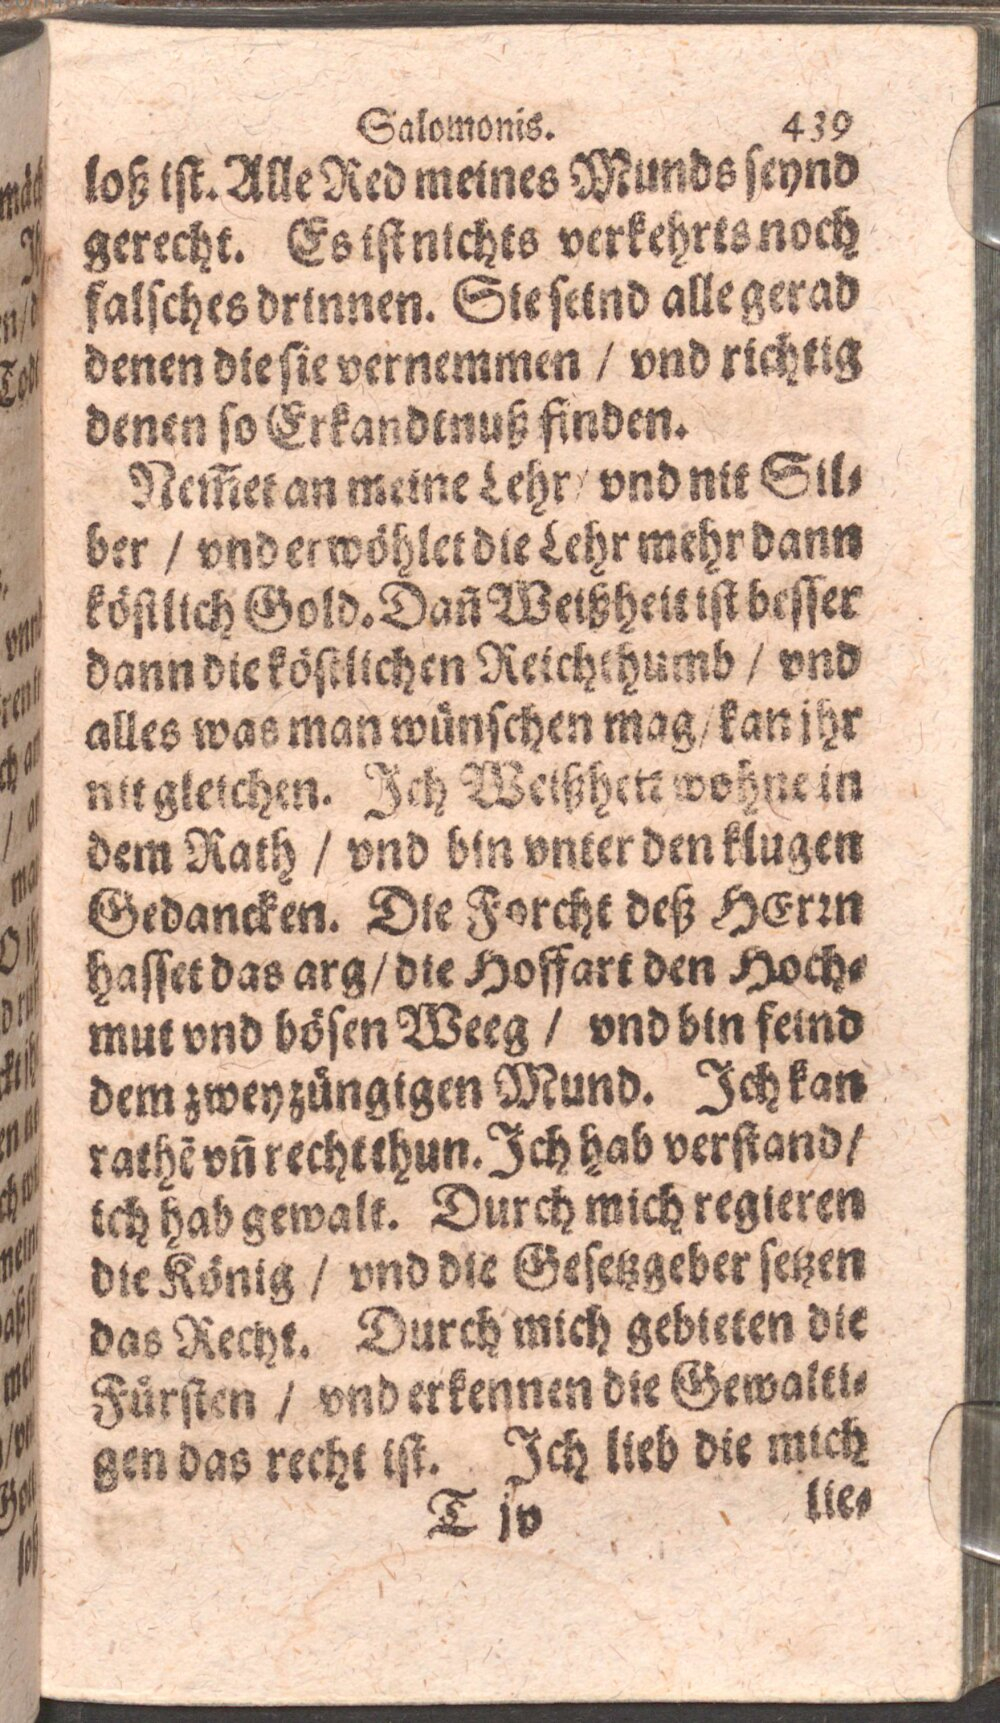 Salomonis. 439
loß ist. Alle Red meines Munds seynd
gerecht. Es ist nichts verkehrts noch
falsches drinnen. Sie seind alle gerad
denen die sie vernemmen / vnd richtig
denen so Erkandtnuß finden.
Nem̃et an meine Lehr / vnd nit Sil⸗
ber / vnd erwöhlet die Lehr mehr dann
köstlich Gold. Dañ Weißheit ist besser
dann die köstlichen Reichthumb / vnd
alles was man wünschen mag / kan jhr
nit gleichen. Ich Weißheit wohne in
dem Rath / vnd bin vnter den klugen
Gedancken. Die Forcht deß HErꝛn
hasset das arg / die Hoffart den Hoch⸗
mut vnd bösen Weeg / vnd bin feind
dem zweyzüngigen Mund. Ich kan
rathē vñ recht thun. Ich hab verstand /
ich hab gewalt. Durch mich regieren
die König / vnd die Gesetzgeber setzen
das Recht. Durch mich gebieten die
Fürsten / vnd erkennen die Gewalti⸗
gen das recht ist. Ich lieb die mich
T jv lie⸗